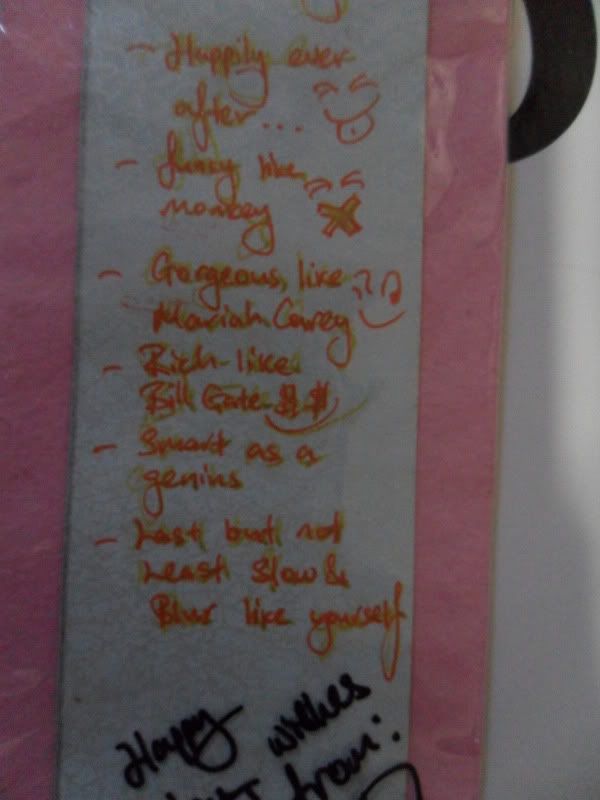 - Happily ever
after...
- funny like
monkey
- Gorgeous, like
Mariah Carey
- Rich like
Bill Gate $ $
- Smart as a
genius
- Last but not
Least Slow &
Blur like yourself
Happy wishes
from: